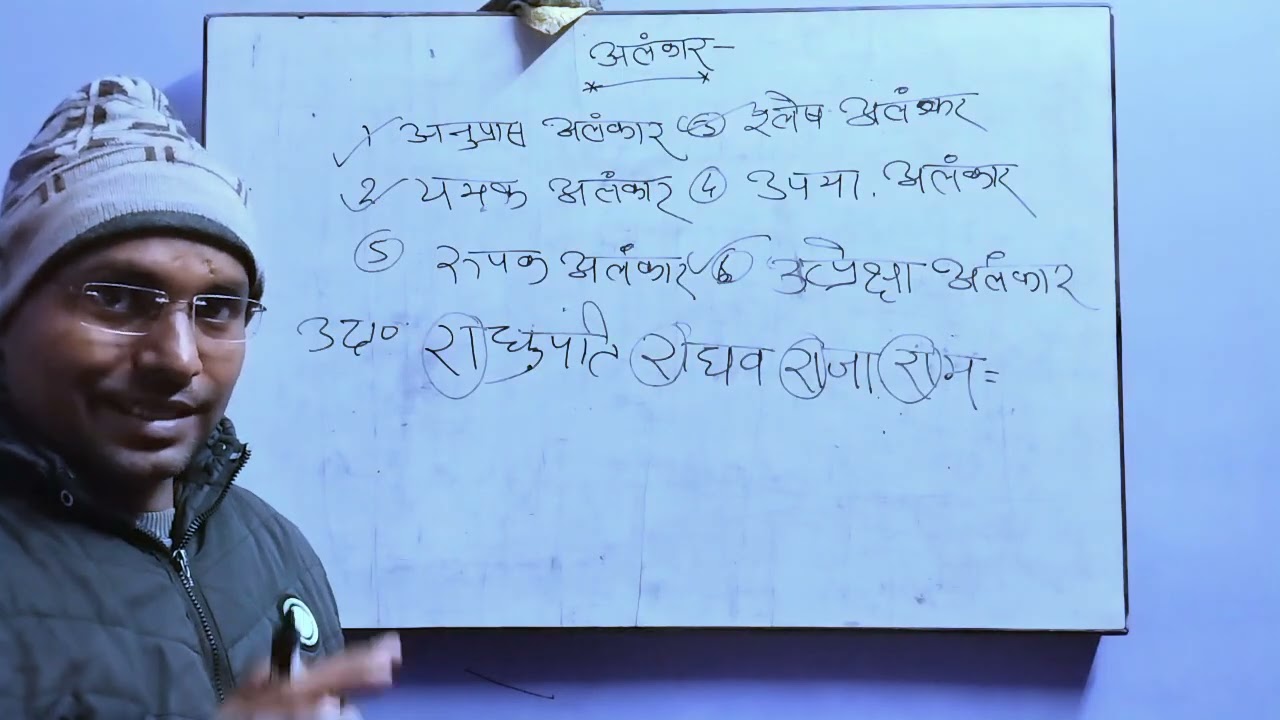 अलंकार-
1 अनुप्रास अलंकार 3 श्लेष अलंकार
2 यमक अलंकार 4 उपमा. अलंकार
5 रूपक अलंकार 6 उत्प्रेक्षा अलंकार
उदा० राघुपति राघव राजा राम=